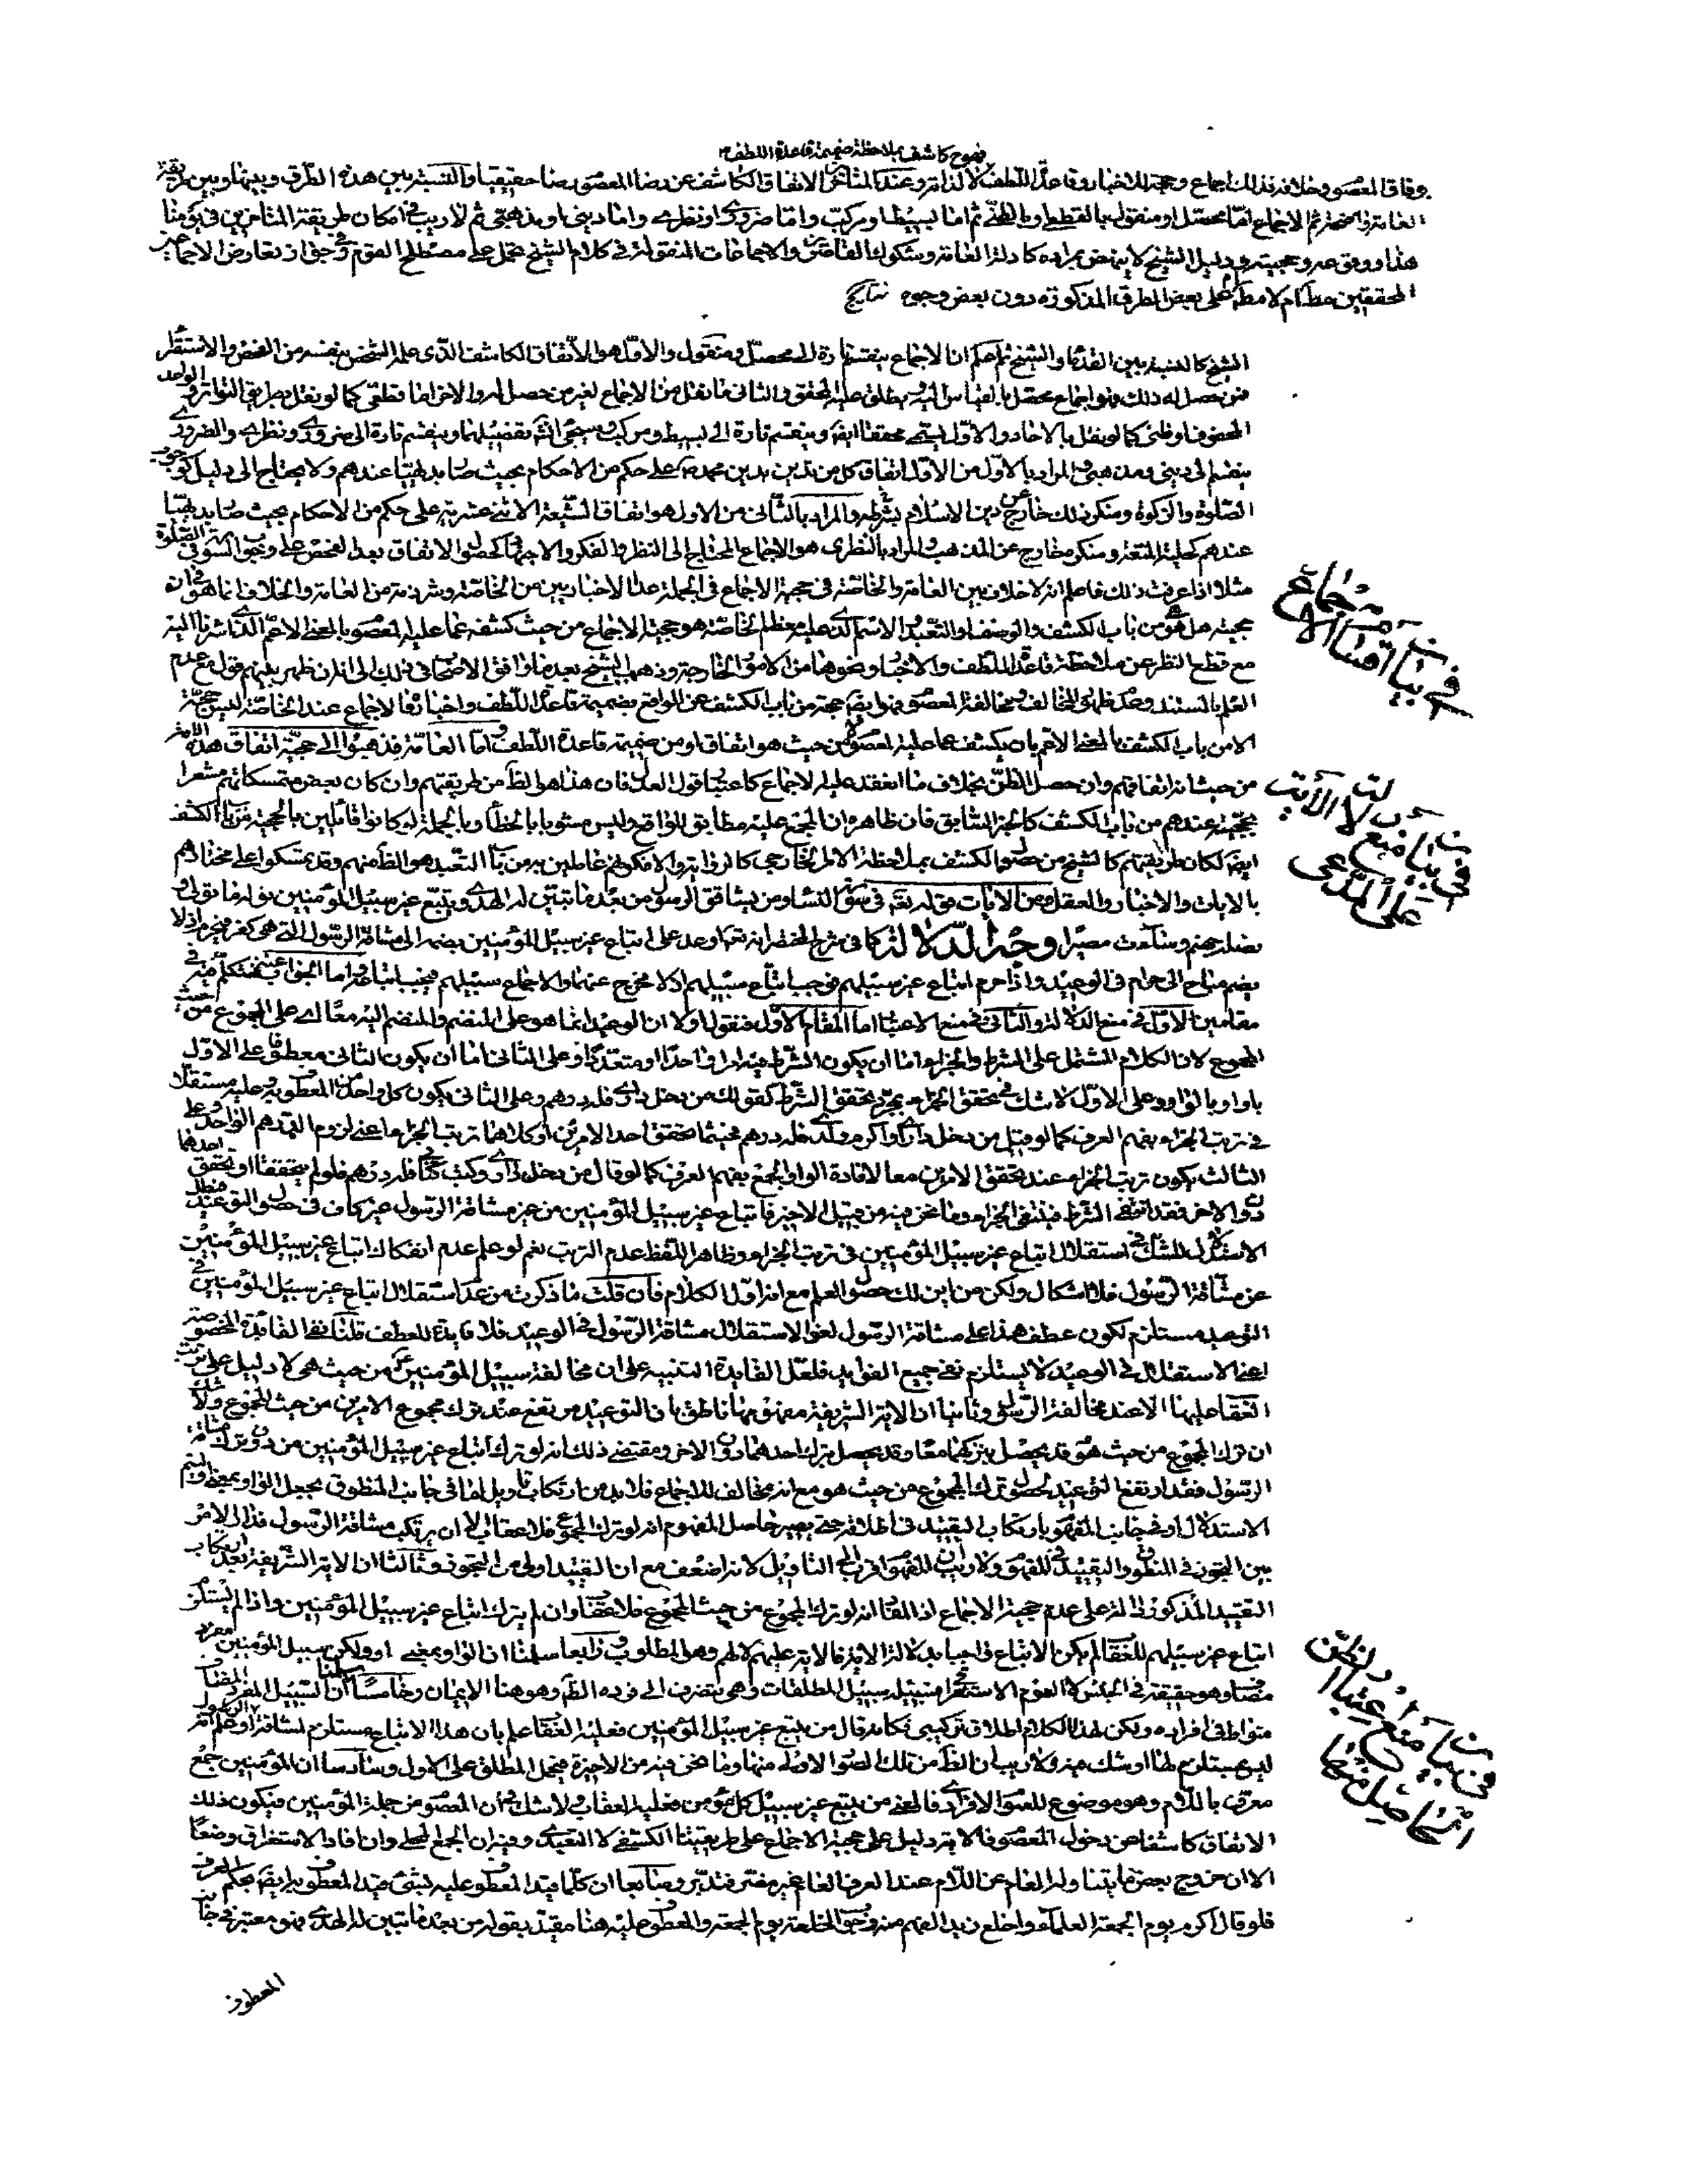 فهو كاشف بملاحظة ضميمة قاعدة اللطف
وفاق المعصوم وخلافه فذلك اجماع وحجة للاخبار وقاعدة اللطف لا لذاته وعند المتأخرين الاتفاق الكاشف عن رضا المعصوم رضا حقيقيا والنسبة بين هذه الطرق وبينها وبين طريقة
العامة واضحة ثم الاجماع اما محصل او منقول بالقطع او بالظن ثم اما بسيط او مركب واما ضروري او نظري واما ديني او مذهبي ثم لا ريب في امكان طريقة المتأخرين في يومنا
هذا ووقوعه وحجيته ودليل الشيخ لا ينهض بمراده كادلة العامة وشكوك القاصرين والاجماعات المنقولة في كلام الشيخ تحمل على مصطلح القوم وفي جواز تعارض الاجماع عند
المحققين مطلقا ام لا مطلقا ام على بعض الطرق المذكورة دون بعض وجوه نتايج
الشيخ كالنسبة بين القدماء والشيخ ثم اعلم ان الاجماع ينقسم تارة الى محصل ومنقول والاول هو الاتفاق الكاشف الذي علمه الشخص بنفسه من الفحص والاستقراء
فمن حصل له ذلك فهو اجماع محصل بالقياس اليه ويطلق عليه المحقق والثاني ما نقل من الاجماع لغير من حصل له والاخر اما قطعي كما لو نقل بطريق التواتر او الواحد
المحفوف او ظني كما لو نقل بالاحاد والاول يسمى محققا ايضا وينقسم تارة الى بسيط ومركب وسيجئ انشاء تفصيلهما وينقسم تارة الى ضروري ونظري والضروري
ينقسم الى ديني ومذهبي والمراد بالاول من الاول اتفاق كل من تدين بدين محمد ص على حكم من الاحكام بحيث صار بديهيا عندهم ولا يحتاج الى دليل كوجوب
الصلوة والزكوة ومنكر ذلك خارج عن دين الاسلام بشرطه والمراد بالثاني من الاول هو اتفاق الشيعة الاثنى عشرية على حكم من الاحكام بحيث صار بديهيا
عندهم كحلية المتعة ومنكره خارج عن المذهب والمراد بالنظري هو الاجماع المحتاج الى النظر والفكر والاجتهاد كحصول الاتفاق بعد الفحص على وجوب السورة في الصلوة
مثلا اذا عرفت ذلك فاعلم انه لا خلاف بين العامة والخاصة في حجية الاجماع في الجملة عدا الاخباريين من الخاصة وشرذمة من العامة والخلاف انما هو في ان
حجيته هل هو من باب الكشف والوصف او التعبد والاسم الذي عليه معظم الخاصة هو حجية الاجماع من حيث كشفه عما عليه المعصوم بالمعنى الاعم الذي اشرنا اليه
مع قطع النظر عن ملاحظة قاعدة اللطف والاخبار ونحوها من الامور الخارجة وذهب الشيخ بعد ما وافق الاصحاب في ذلك الى انه ان ظهر بينهم قول مع عدم
العلم بالمستند وعدم ظهور المخالف ومخالفة المعصوم فهو ايضا حجة من باب الكشف عن الواقع بضميمة قاعدة اللطف واخبارها فالاجماع عند الخاصة ليس حجة
الا من باب الكشف بالمعنى الاعم بان يكشف عما عليه المعصوم من حيث هو اتفاق او من ضميمة قاعدة اللطف واما العامة فذهبوا الى حجية اتفاق هذه الامة
من حيث انه اتفاقهم وان حصل الظن بخلاف ما انعقد عليه الاجماع كاعتبار قول العدل فان هذا هو الظ من طريقتهم وان كان بعض متمسكاتهم مشعرا
بحجيته عندهم من باب الكشف كالخبر السابق فان ظاهره ان المجمع عليه مطابق للواقع وليس مشوبا بالخطأ وبالجملة لو كانوا قائلين بالحجية من باب الكشف
ايضا لكان طريقتهم كالشيخ من حصول الكشف بملاحظة الامر الخارجي كالرواية والا فكونهم عاملين به من باب التعبد هو الظ منهم وقد تمسكوا على مختارهم
بالايات والاخبار والعقل ومن الايات قوله تعالى في سورة النساء ومن يشاقق الرسول من بعد ما تبين له الهدى ويتبع غير سبيل المؤمنين نوله ما تولى و
نصله جهنم وساءت مصيرا وجه الدلالة كما في شرح المختصر انه تعالى اوعد على اتباع غير سبيل المؤمنين بضمه الى مشاقة الرسول التي هي كفر فيحرم اذ لا
يضم مباح الى حرام في الوعيد واذا حرم اتباع غير سبيلهم فيجب اتباع سبيلهم اذ لا مخرج عنهما والاجماع سبيلهم فيجب اتباعه واما الجواب عنه فنتكلم فيه في
مقامين الاول في منع الدلالة والثاني في منع الاعتبار اما المقام الاول فنقول اولا ان الوعيد انما هو على المنضم والمنضم اليه معا اي على المجموع من حيث
المجموع لان الكلام المشتمل على الشرط والجزاء اما ان يكون الشرط فيه امرا واحدا او متعددا وعلى الثاني اما ان يكون الثاني معطوفا على الاول
باو او بالواو وعلى الاول لا شك في تحقق الجزاء بمجرد تحقق الشرط كقولك من دخل داري فله درهم وعلى الثاني يكون كل واحد من المعطوف وعليه مستقلا
في ترتب الجزاء بفهم العرف كما لو قيل من دخل داري او اكرم ولدي فله درهم فحينما تحقق احد الامرين او كلاهما ترتب الجزاء اعني لزوم الدرهم الواحد وعلى
الثالث يكون ترتب الجزاء عند تحقق الامرين معا لافادة الواو الجمع بفهم العرف كما لو قال من دخل داري وكتب كتابي فله درهم فلو لم يتحققا او تحقق احدهما
دون الاخر فقد انتفى الشرط فينتفي الجزاء وما نحن فيه من قبيل الاخير فاتباع غير سبيل المؤمنين من غير مشاقة الرسول غير كاف في حصول التوعيد فبطل
الاستدلال للشك في استقلال اتباع غير سبيل المؤمنين في ترتب الجزاء وظاهر اللفظ عدم الترتب نعم لو علم عدم انفكاك اتباع غير سبيل المؤمنين
عن مشاقة الرسول فلا اشكال ولكن من اين لك حصول العلم مع انه اول الكلام فان قلت ما ذكرت من عدم استقلال اتباع غير سبيل المؤمنين في
التوعيد مستلزم لكون عطف هذا على مشاقة الرسول لغوا لاستقلال مشاقة الرسول في الوعيد فلا فايدة للعطف قلنا نفي الفايدة المخصوصة
اعني الاستقلال في الوعيد لا يستلزم نفي جميع الفوايد فلعل الفايدة التنبيه على ان مخالفة سبيل المؤمنين من حيث هي لا دليل على ترتب
العقاب عليها الا عند مخالفة الرسول وثانيا ان الاية الشريفة مفهومها ناطق بان التوعيد مرتفع عند ترك مجموع الامرين من حيث المجموع ولا شك
ان ترك المجموع من حيث هو قد يحصل بتركهما معا وقد يحصل بترك احدهما دون الاخر ومقتضى ذلك انه لو ترك اتباع غير سبيل المؤمنين من دون ترك مشاقة
الرسول فقد ارتفع التوعيد لحصول ترك المجموع من حيث هو مع انه مخالف للاجماع فلا بد من ارتكاب تاويل اما في جانب المنطوق بجعل الواو بمعنى او ليتم
الاستدلال او في جانب المفهوم بارتكاب التقييد في اطلاقه حتى يصير حاصل المفهوم انه لو ترك المجموع فلا عقاب الا ان يرتكب مشاقة الرسول فدار الامر
بين التجوز في المنطوق والتقييد في المفهوم ولا ريب ان المفهوم اقرب الى التاويل لانه اضعف مع ان التقييد اولى من التجوز وثالثا ان الاية الشريفة بعد ارتكاب
التقييد المذكور دالة على عدم حجية الاجماع اذ المفاد انه لو ترك المجموع من حيث المجموع فلا عقاب وان لم يترك اتباع غير سبيل المؤمنين واذا لم يستلزم
اتباع غير سبيلهم للعقاب لم يكن الاتباع واجبا بدلالة الاية فالاية عليهم لا لهم وهو المطلوب ورابعا سلمنا ان الواو بمعنى او ولكن سبيل المؤمنين مفرد
مضاف وهو حقيقة في الجنس لا العموم الاستغراقي فسبيله سبيل المطلقات وهي ينصرف الى فرده الظ وهو هنا الايمان وخامسا سلمنا ان السبيل المفرد المضاف
متواط في افراده ولكن لهذا الكلام اطلاق تركيبي فكانه قال من يتبع غير سبيل المؤمنين فعليه العقاب علم بان هذا الاتباع مستلزم لمشاقة الرسول او علم انه
ليس بمستلزم لها او شك فيه ولا ريب ان الظ من تلك الصور الاولى منها وما نحن فيه من الاخيرة فيحمل المطلق على الاول وسادسا ان المؤمنين جمع
معرف باللام وهو موضوع للعموم الافرادي فالمعنى من يتبع غير سبيل كل مؤمن فعليه العقاب ولا شك ان المعصوم من جملة المؤمنين فيكون ذلك
الاتفاق كاشفا عن دخول المعصوم فالاية دليل على حجية الاجماع على طريقتنا الكشفي لا التعبدي وفيه ان الجمع المحلى وان افاد الاستغراق وضعا
الا ان خروج بعض ما يتناوله العام عن اللام عند العرف العام غير مضر فتدبر وسابعا ان كلما قيد المعطوف عليه بشئ قيد المعطوف به ايضا بحكم العرف
فلو قال اكرم يوم الجمعة العلماء واخلع زيدا لفهم منه وجوب الخلعة يوم الجمعة والمعطوف عليه هنا مقيد بقوله من بعد ما تبين له الهدى فهو معتبر في جانب
المعطوف
في بيان اقسام الاجماع
في بيان منع دلالة الآيات على المدعى
في بيان منع اعتبار الظن الحاصل منها